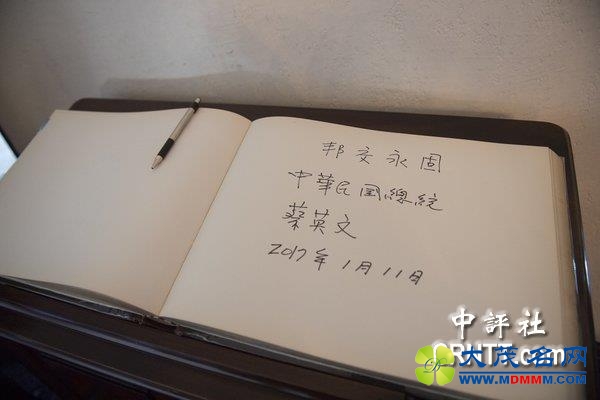 邦交永固
中華民国總統
蔡英文
2017年1月11日
中評社
CRNTT.com
大茂名网
WWW.MDMMM.COM